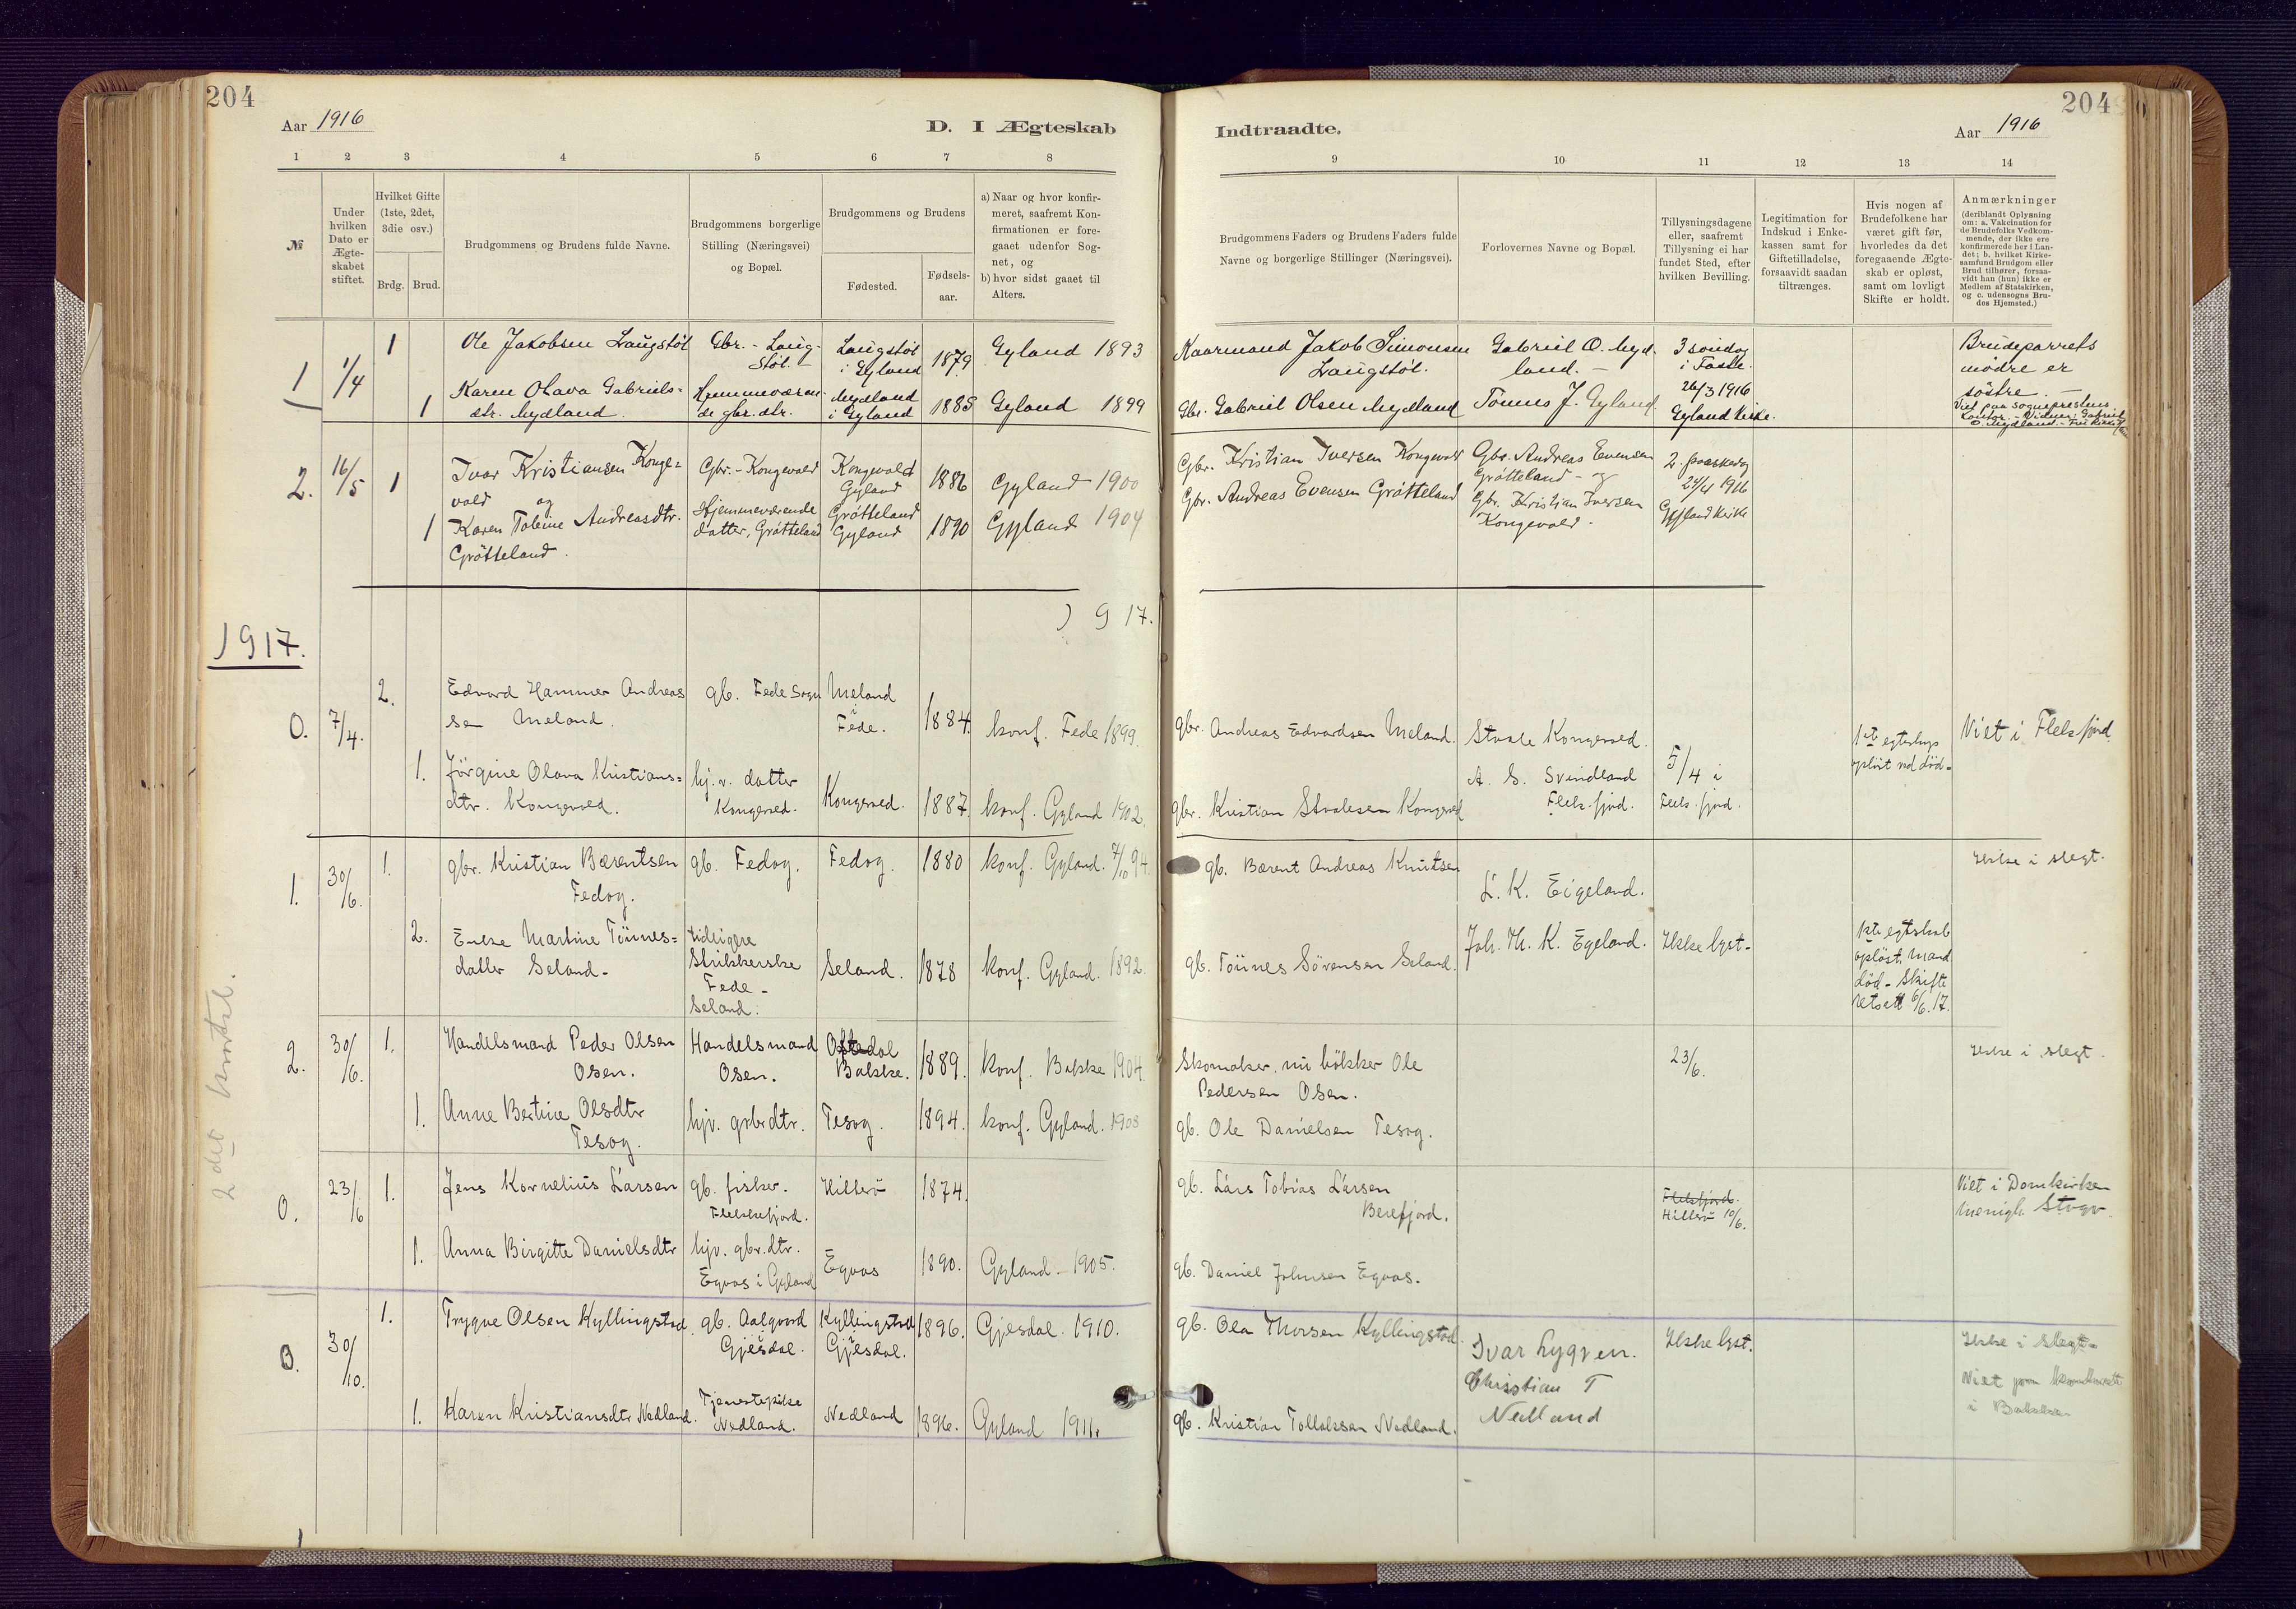 204
Aar 1916
D. I Ægteskab
1 2 3 4 5 6 7 8
№
Under
hvilken
Dato er
Ægte-
skabet
stiftet.
Hvilket Gifte
(1ste, 2det,
3die osv.)
Brdg. Brud.
Brudgommens og Brudens fulde Navne.
Brudgommens borgerlige
Stilling (Næringsvei)
og Bopæl.
Brudgommens og Brudens
Fødested.
Fødsels-
aar.
a) Naar og hvor konfir-
meret, saafremt Kon-
firmationen er fore-
gaaet udenfor Sog-
net, og
b) hvor sidst gaaet til
Alters.
1 1/4
1 Ole Jakobsen Laugstöl
Gbr. - Laug-
stöl.
Laugstöl
i Gyland
1879
Gyland 1893
1 Karen Olava Gabriels-
dtr. Mydland.
Hjemmeværen-
de gbr. dtr.
Mydland
i Gyland
Gyland 1899
2. 16/5
1 Ivar Kristiansen Konge=
vold og
Gbr. - Kongevold
Kongevold
Gyland
1886
Gyland 1900
1 Karen Tobine Andreasdtr.
Grötteland.
Hjemmeværende
datter, Grötteland
Grötteland
Gyland
1890
Gyland 1904
1917.
1917.
0. 7/4.
2. Edvard Hammer Andreas
sen Meland.
gb. Fede Sogn
Meland
i
Fede.
1884.
konf. Fede 1899.
1. Jörgine Olava Kristians=
dtr. Kongevold.
hj. v. datter
Kongevold.
Kongevold.
1887.
konf. Gyland 1902.
1. 30/6.
1. gbr. Kristian Bærentsen
Fedog.
gb. Fedog.
Fedog.
1880
konf. Gyland. 7/10 94.
2. Enke Martine Tönnes=
datter Seland-
tidligere
Strikkerske
Fede-
Seland.
Seland.
1878
konf. Gyland. 1892.
2det kvartal.
2. 30/6.
1. Handelsmand Peder Olsen
Osen.
Handelsmand
Osen.
Bakke.
1889.
konf. Bakke 1904.
1. Anne Bertine Olsdtr
Tesog.
hjv. grbrdtr.
Tesog.
1894.
konf. Gyland. 1908
0. 23/6
1. Jens Kornelius Larsen
gb. fisker.
Flekkefjord.
Hitterö
1874.
1. Anna Birgitte Danielsdtr
hjv. gbr. dtr.
Egvas i Gyland
Egvas
1890.
Gyland - 1905.
0. 30/10.
1. Trygve Olsen Kyllingstad.
gb. Aalgaard
Gjesdal.
Kyllingstad
Gjesdal.
1896.
Gjesdal. 1910.
1. Karen Kristiansdtr Nedland.
Tjenestepike
Nedland.
Nedland
1896.
Gyland 1911.
204
Indtraadte.
Aar 1916
9 10 11 12 13 14
Brudgommens Faders og Brudens Faders fulde
Navne og borgerlige Stillinger (Næringsvei).
Forlovernes Navne og Bopæl.
Tillysningsdagene
eller, saafremt
Tillysning ei har
fundet Sted, efter
hvilken Bevilling.
Legitimation for
Indskud i Enke-
kassen samt for
Giftetilladelse,
forsaavidt saadan
tiltrænges.
Hvis nogen af
Brudefolkene har
været gift før,
hvorledes da det
foregaaende Ægte-
skab er opløst,
samt om lovligt
Skifte er holdt.
Anmærkninger
(deriblandt Oplysning
om: a. Vakcination for
de Brudefolks Vedkom-
mende, der ikke ere
konfirmerede her i Lan-
det; b. hvilket Kirke-
samfund Brudgom eller
Brud tilhører, forsaa-
vidt han (hun) ikke er
Medlem af Statskirken,
og c. udensogns Bru-
des Hjemsted.)
Kaarmand Jakob Simonsen
Laugstöl.
Gbr. Gabriel Olsen Mydland
Gabriel O. Myd-
land. -
Tönnes J. Gyland.
3 söndag
i Faste.
26/3 1916
Gyland Kirke.
Brudeparrets
mödre er
söstre. -
Viet paa sogneprestens
kontor. - Vidner: Gabriel
O. Mydland. -
Gbr. Kristian Iversen Kongevold
Gbr. Andreas Evensen Grötteland
Gbr. Andreas Evensen
Grötteland - og
Gbr. Kristian Iversen
Kongevold.
2. paaskedag
24/4 1916
Gyland Kirke
gbr. Andreas Edvardsen Meland.
gbr. Kristian Staalesen Kongevold
Staale Kongevold.
A. S. Svindland
Flekkefjord.
5/4 i
Flekkefjord.
1ste egteskap
oplöst ved död-
Viet i Flekkefjord.
gb. Bærent Andreas Knutsen
gb. Tönnes Sörensen Seland.
L. K. Eigeland.
Joh. Th. K. Egeland.
Ikke lyst-
1ste egteskab
oplöst, mand
död - Skifte
6/6. 17.
Ikke i slegt.
Skomaker, nu bökker Ole
Pedersen Osen.
gb. Ole Danielsen Tesog.
23/6.
Ikke i slegt.
gb. Lars Tobias Larsen
Berefjord.
gb. Daniel Johnsen Egvas.
Flekkefjord.
Hitterö 10/6.
Viet i Domkirken
menigh. Stvgr.
gb. Ola Thorsen Kyllingstad.
gb. Kristian Tollaksen Nedland.
Ivar Lygren.
Christian T
Nedland
Ikke lyst.
Ikke i slegt-
Viet paa kontoret
i Bakke